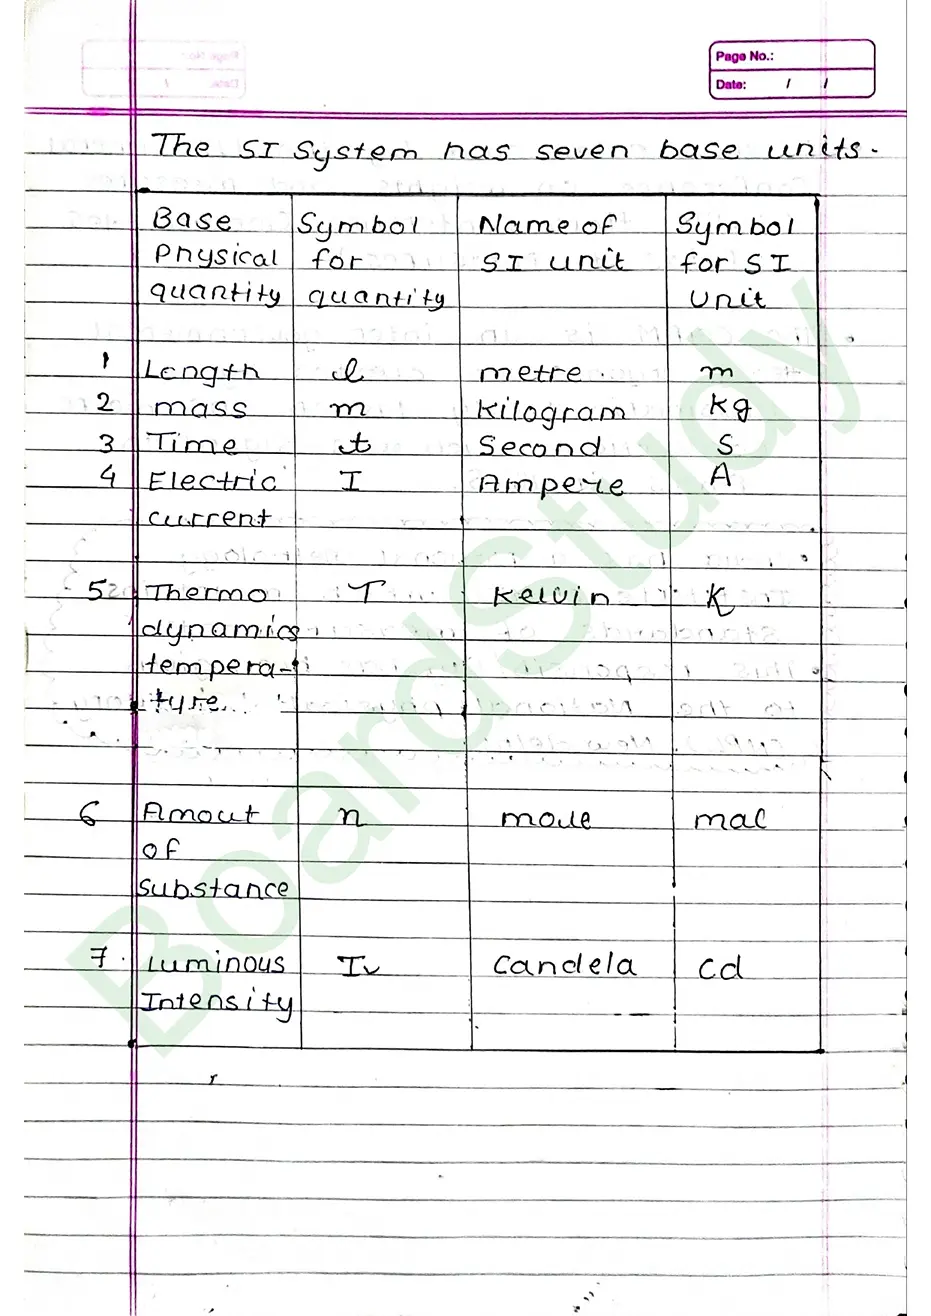 Page No.:
Date: / /
The SI System has seven base units.
Base Symbol Name of Symbol
Physical for SI unit for SI
quantity quantity Unit
1 Length l metre m
2 mass m Kilogram Kg
3 Time t Second S
4 Electric I Ampere A
current
5 Thermo T Kelvin K
dynamics
tempera-
ture.
6 Amout n mole mal
of
Substance
7. Luminous Iv Candela Cd
Intensity
BoardStudy